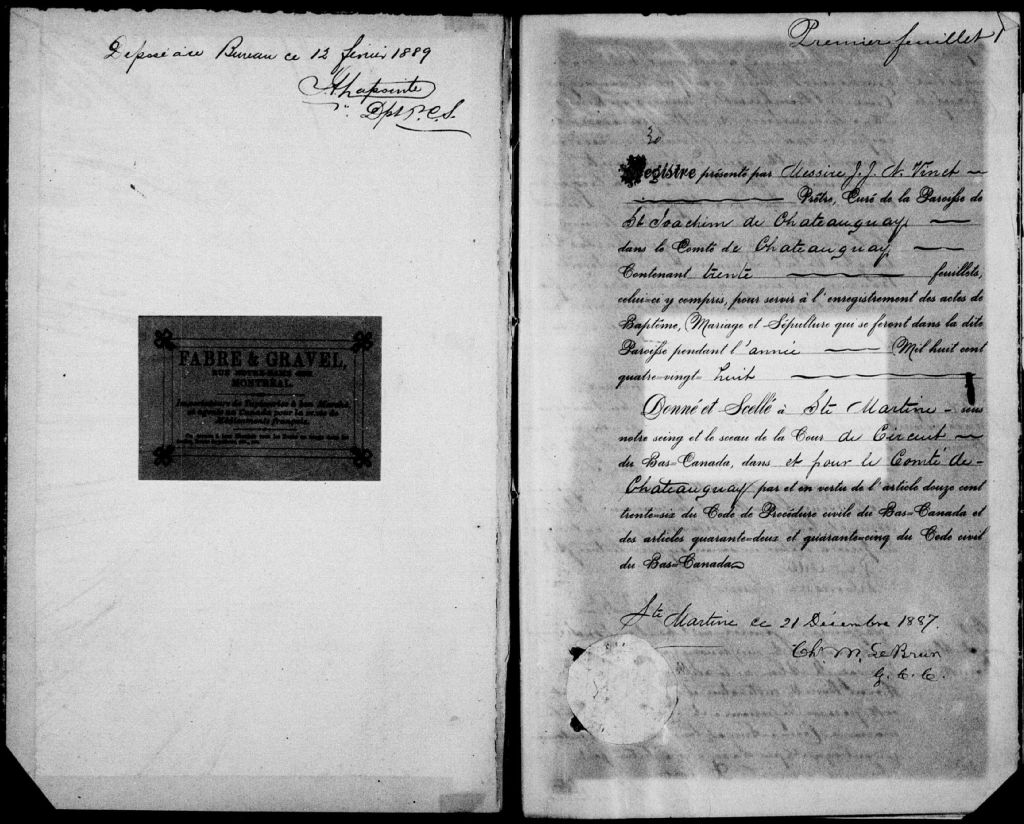 Déposé au Bureau ce 12 février 1889
Dpt P.C.S.
FABRE & GRAVEL,
RUE NOTRE-DAME
MONTREAL.
Importateurs de Papeterie à bon Marché,
et agents au Canada pour la vente de
Médicaments français.
Premier feuillet
30
Registre présenté par Messire J. J. N. Vinet
Prêtre, Curé de la Paroisse de
St Joachim de Chateauguay
dans le Comté de Chateauguay
Contenant trente feuillets,
celui-ci y compris, pour servir à l'enregistrement des actes de
Baptême, Mariage et Sépulture qui se feront dans la dite
Paroisse pendant l'année Mil huit cent
quatre-vingt huit
Donné et Scellé à Ste Martine sous
notre seing et le sceau de la Cour de Circuit
du Bas-Canada, dans et pour le Comté de
Chateauguay par et en vertu de l'article douze cent
trente-six du Code de Procédure civile du Bas-Canada et
des articles quarante-deux et quarante-cinq du Code civil
du Bas-Canada
Ste Martine ce 21 Décembre 1887.
Chs M. LeBrun
G. C. C.